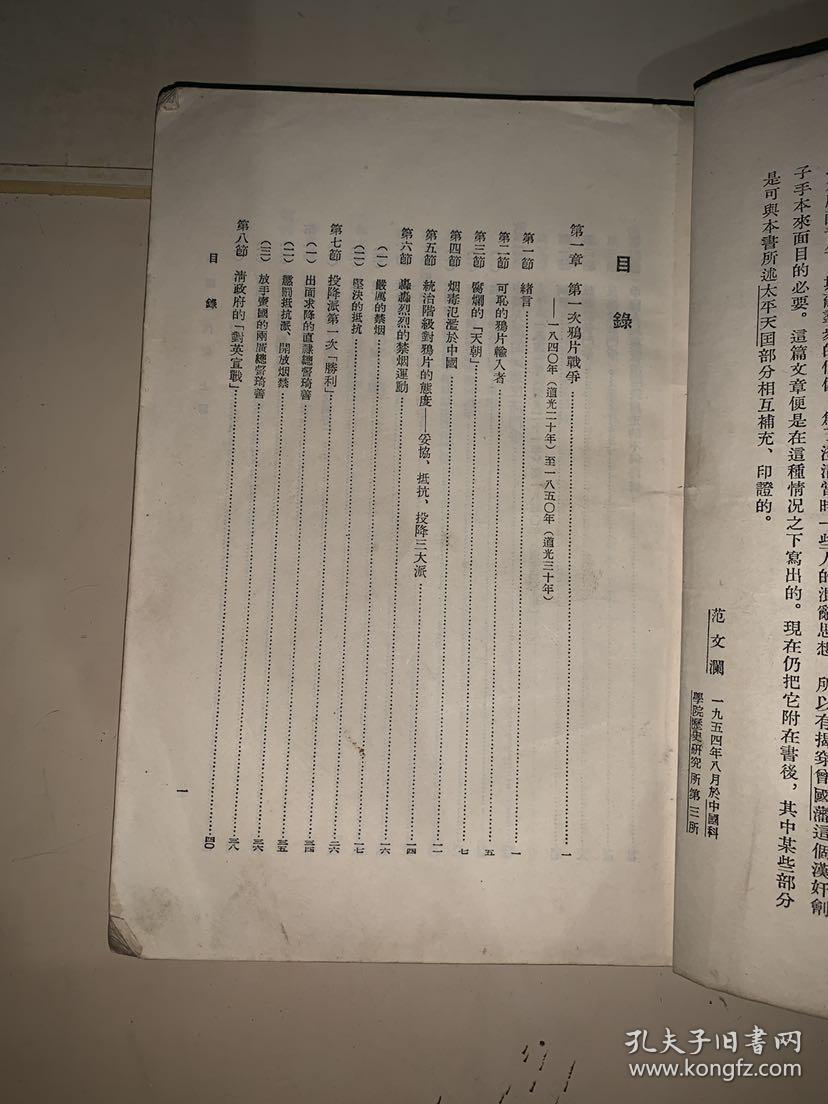 子手本來面目的必要。這篇文章便是在這種情况之下寫出的。現在仍把它附在書後，其中某些部分
是可與本書所述太平天国部分相互補充、印證的。
范文瀾 一九五四年八月於中國科
學院歷史研究所第三所
目錄
第一章 第一次鴉片戰爭……一
——一八四〇年（道光二十年）至一八五〇年（道光三十年）
第一節 緒言……一
第二節 可恥的鴉片輸入者……五
第三節 腐爛的「天朝」
第四節 烟毒氾濫於中國……七
第五節 統治階級對鴉片的態度——妥協、抵抗、投降三大派……一一
第六節 轟轟烈烈的禁烟運動……一四
（一） 嚴厲的禁烟……一六
（二） 堅決的抵抗……一七
第七節 投降派第一次「勝利」……二六
（一） 出面求降的直隷總督琦善……三四
（二） 懲罰抵抗派、開放烟禁……三五
（三） 放手賣國的兩廣總督琦善……三六
第八節 淸政府的「對英宣戰」……三八
……四〇
目錄
一
孔夫子旧书网
www.kongfz.com